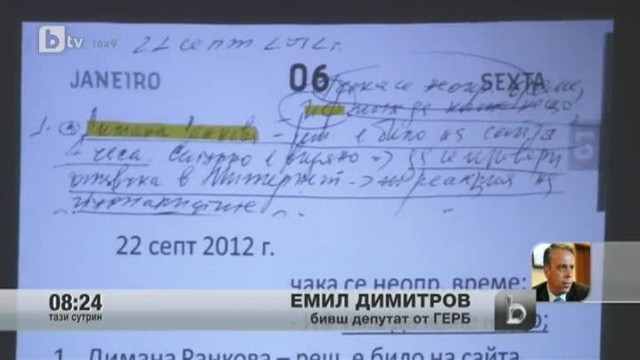 btv 16x9
22 септ 2012 г.
JANEIRO 06 SEXTA
чака се неопр. време,
да каже нещо
1. Димана Ранкова - реш. е било на сайта
4 часа. Скоро е вярно -> да се провери
отзвука в Интернет -> реакция на
22 септ 2012 г.
чака се неопр. време;
08:24
тази сутрин
ЕМИЛ ДИМИТРОВ
бивш депутат от ГЕРБ
b
1. Димана Ранкова – реш. е било на сайта